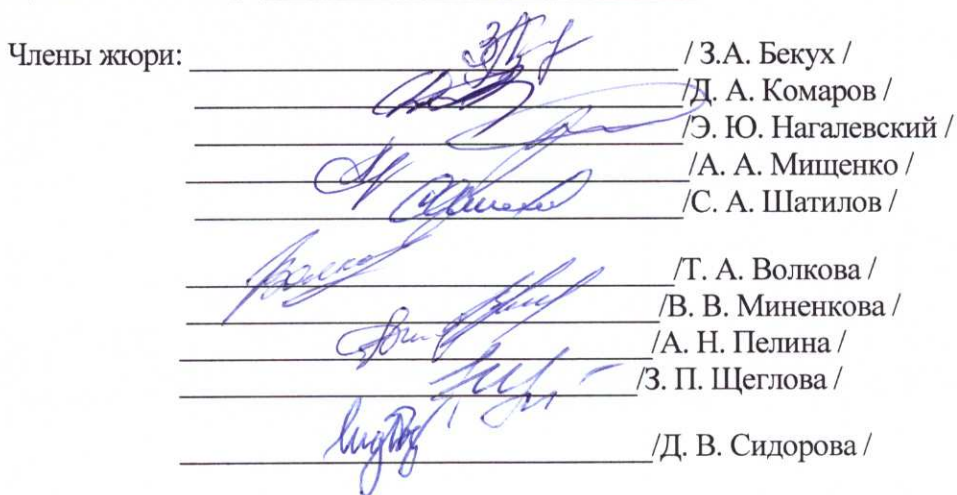 Члены жюри: / З.А. Бекух /
/Д. А. Комаров /
/Э. Ю. Нагалевский /
/А. А. Мищенко /
/С. А. Шатилов /
/Т. А. Волкова /
/В. В. Миненкова /
/А. Н. Пелина /
/З. П. Щеглова /
/Д. В. Сидорова /